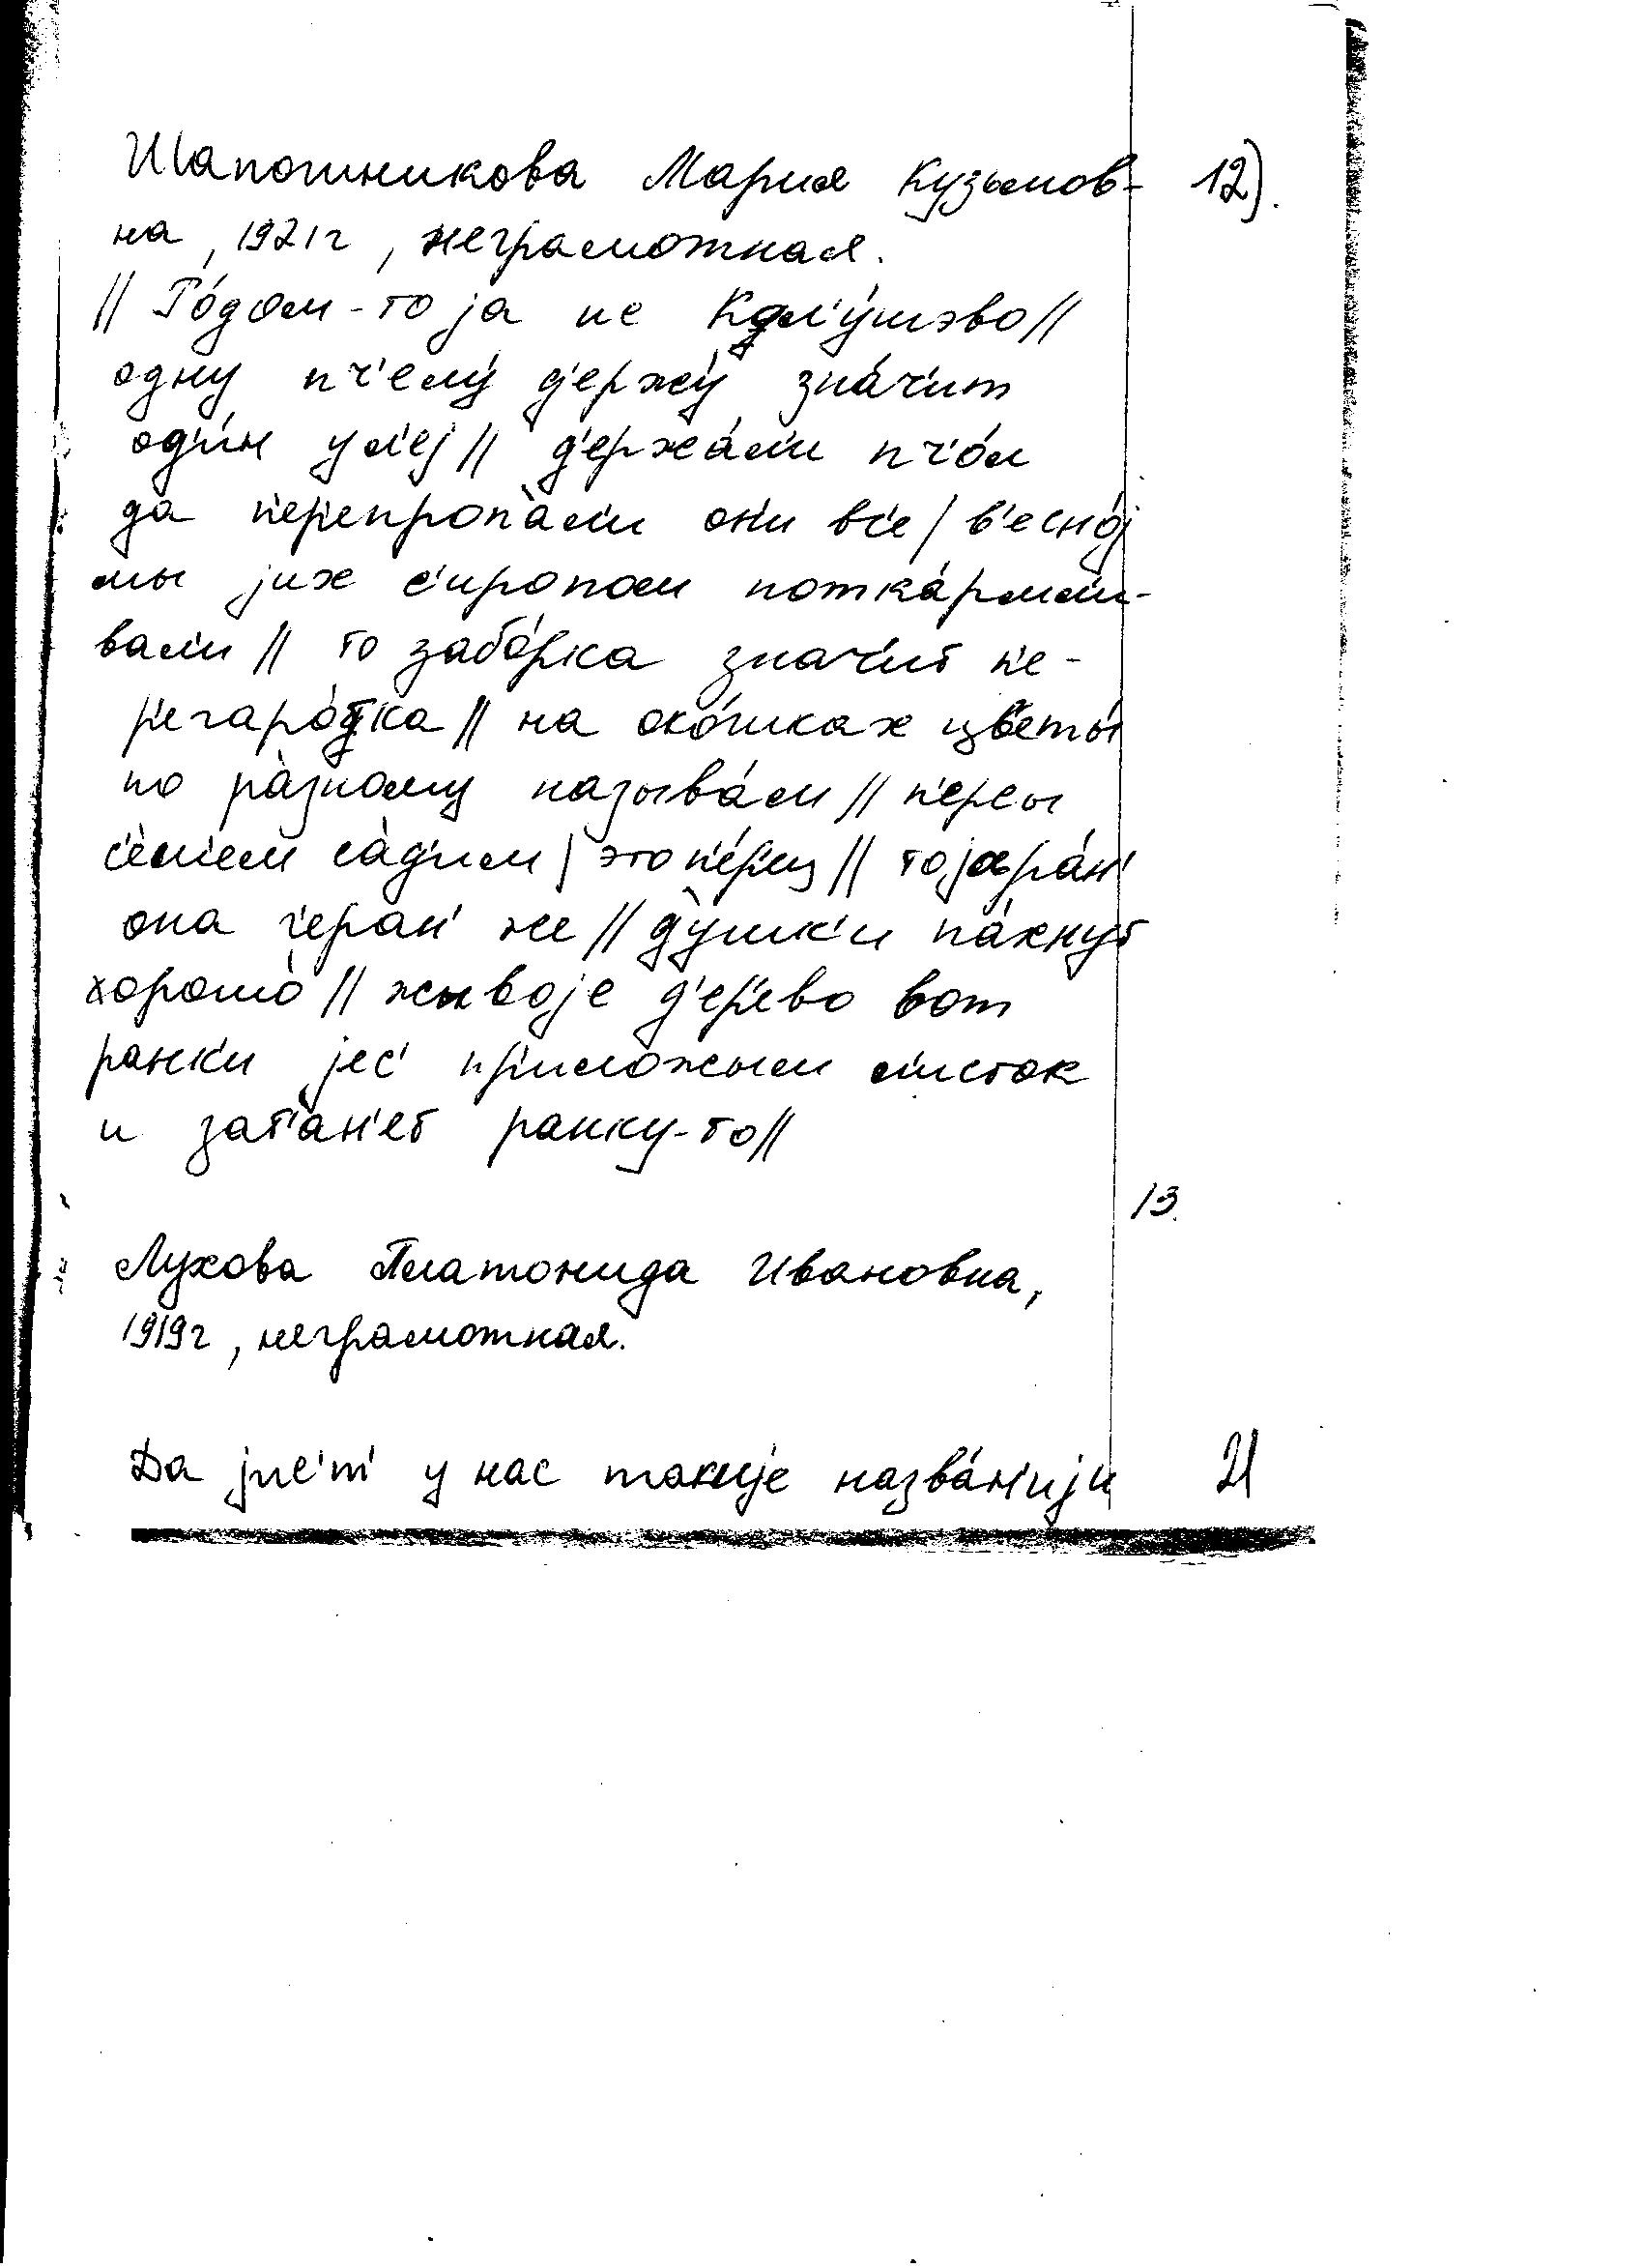 Шапошникова Мария Кузьмов- 12).
на, 1921г, неграмотная.
// Го́дом-то jа не //
одну пч'елу́ д'ержу́ зна́ч'ит
од'и́н ул'еj // д'ержа́л'и пч'о́л
да п'ер'епропа́л'и он'и вс'е / в'есно́j
мы jих с'иропом поткармл'и-
вал'и // то забо́рка знач'ит п'е-
р'егаро́тка // на око́шках цв'еты́
по ра́зному называ́л'и // п'ерсы
с'е́м'ем са́д'им / это п'е́р'ец // то jера́н'
она г'еран' же // ду́шк'и па́хнут
хорошо́ // жывоjе д'ер'ево вот
ранк'и jес' пр'иложым л'исток
и зат'ан'ет ранку-то //
13.
Лухова Платонида Ивановна,
1919г, неграмотная.
Да jис'т' у нас такиjе назва́н'иjи 21